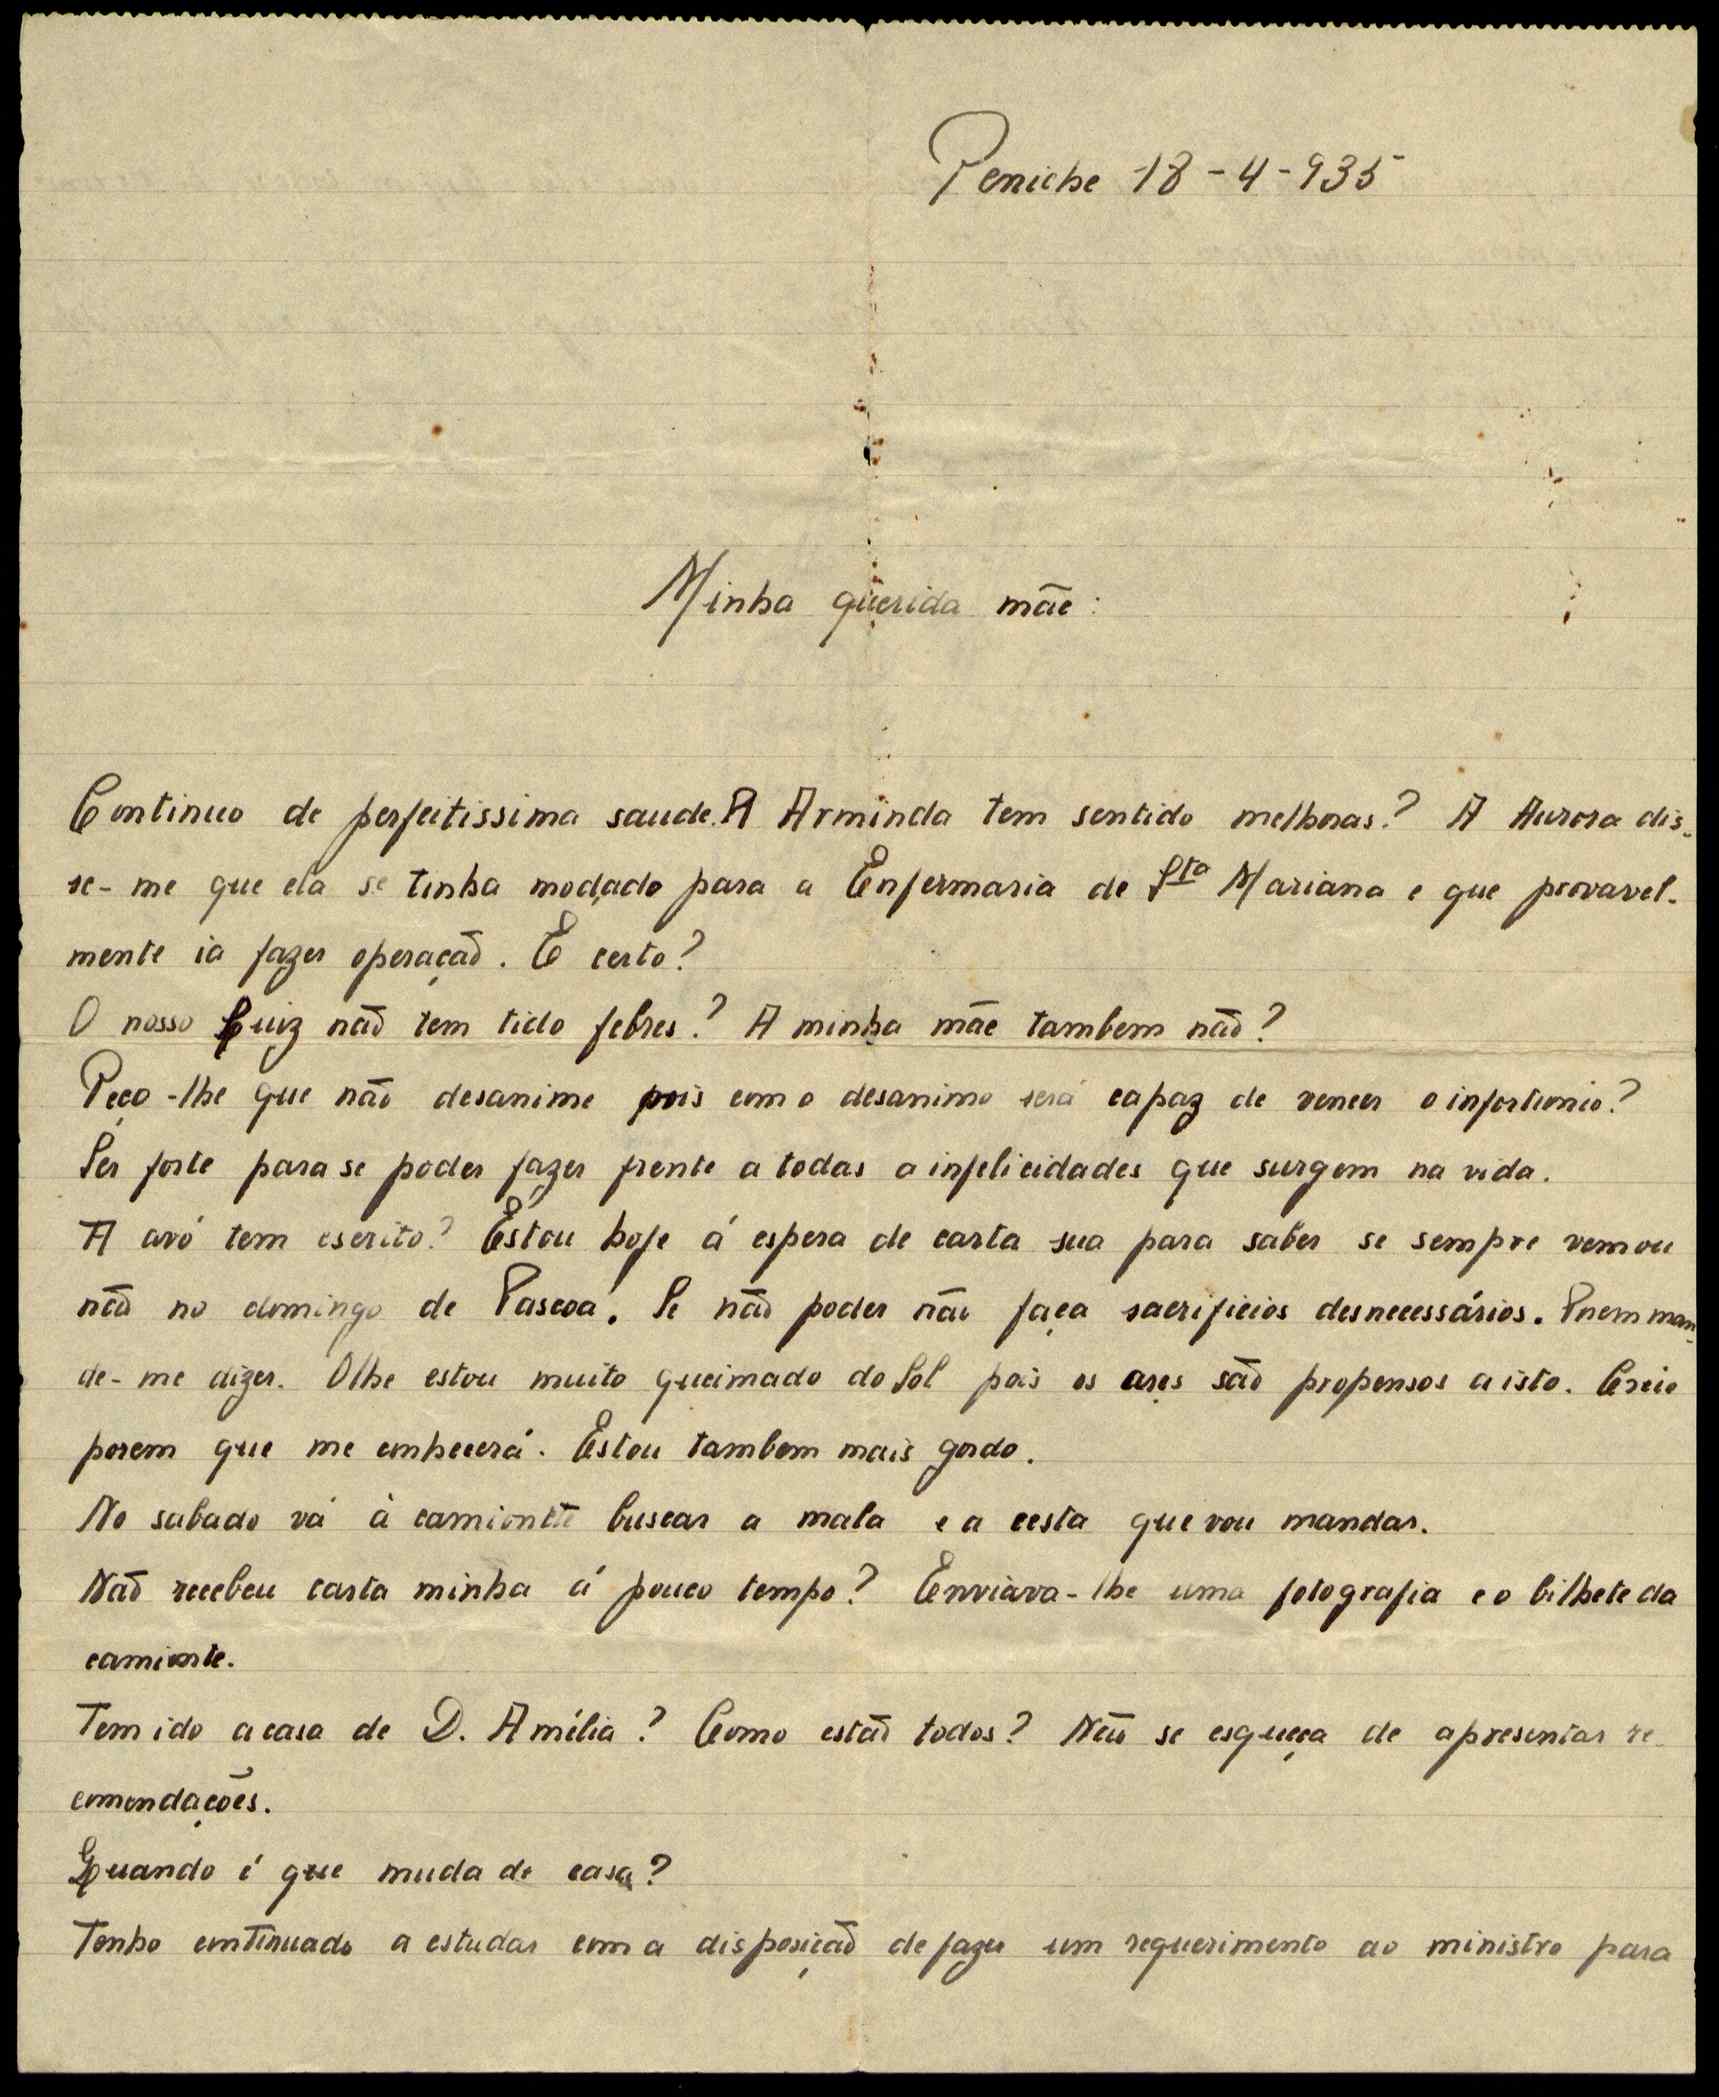 Peniche 18-4-935
Minha querida mãe:
Continuo de perfeitissima saude. A Arminda tem sentido melhoras? A Aurora dis-
se-me que ela se tinha modado para a Enfermaria de Sta Mariana e que provavel-
mente ia fazer operação. É certo?
O nosso Luiz não tem tido febres? A minha mãe tambem não?
Peço-lhe que não desanime pois com o desanimo será capaz de vencer o infortunio?
Ser forte para se poder fazer frente a todas a infelicidades que surgem na vida.
A avó tem escrito? Estou hoje á espera de carta sua para saber se sempre vem ou
não no domingo de Pascoa. Se não poder não faça sacrificios desnecessários. Porem man-
de-me dizer. Olhe estou muito queimado do Sol pois os ares são propensos a isto. Creio
porem que me conhecerá. Estou tambem mais gordo.
No sabado vá à camionete buscar a mala e a cesta que vou mandar.
Não recebeu carta minha á pouco tempo? Enviava-lhe uma fotografia e o bilhete da
camionte.
Tem ido a casa de D. Amélia? Como estão todos? Não se esqueça de apresentar re-
comendações.
Quando é que muda de casa?
Tenho continuado a estudar com a disposição de fazer um requerimento ao ministro para